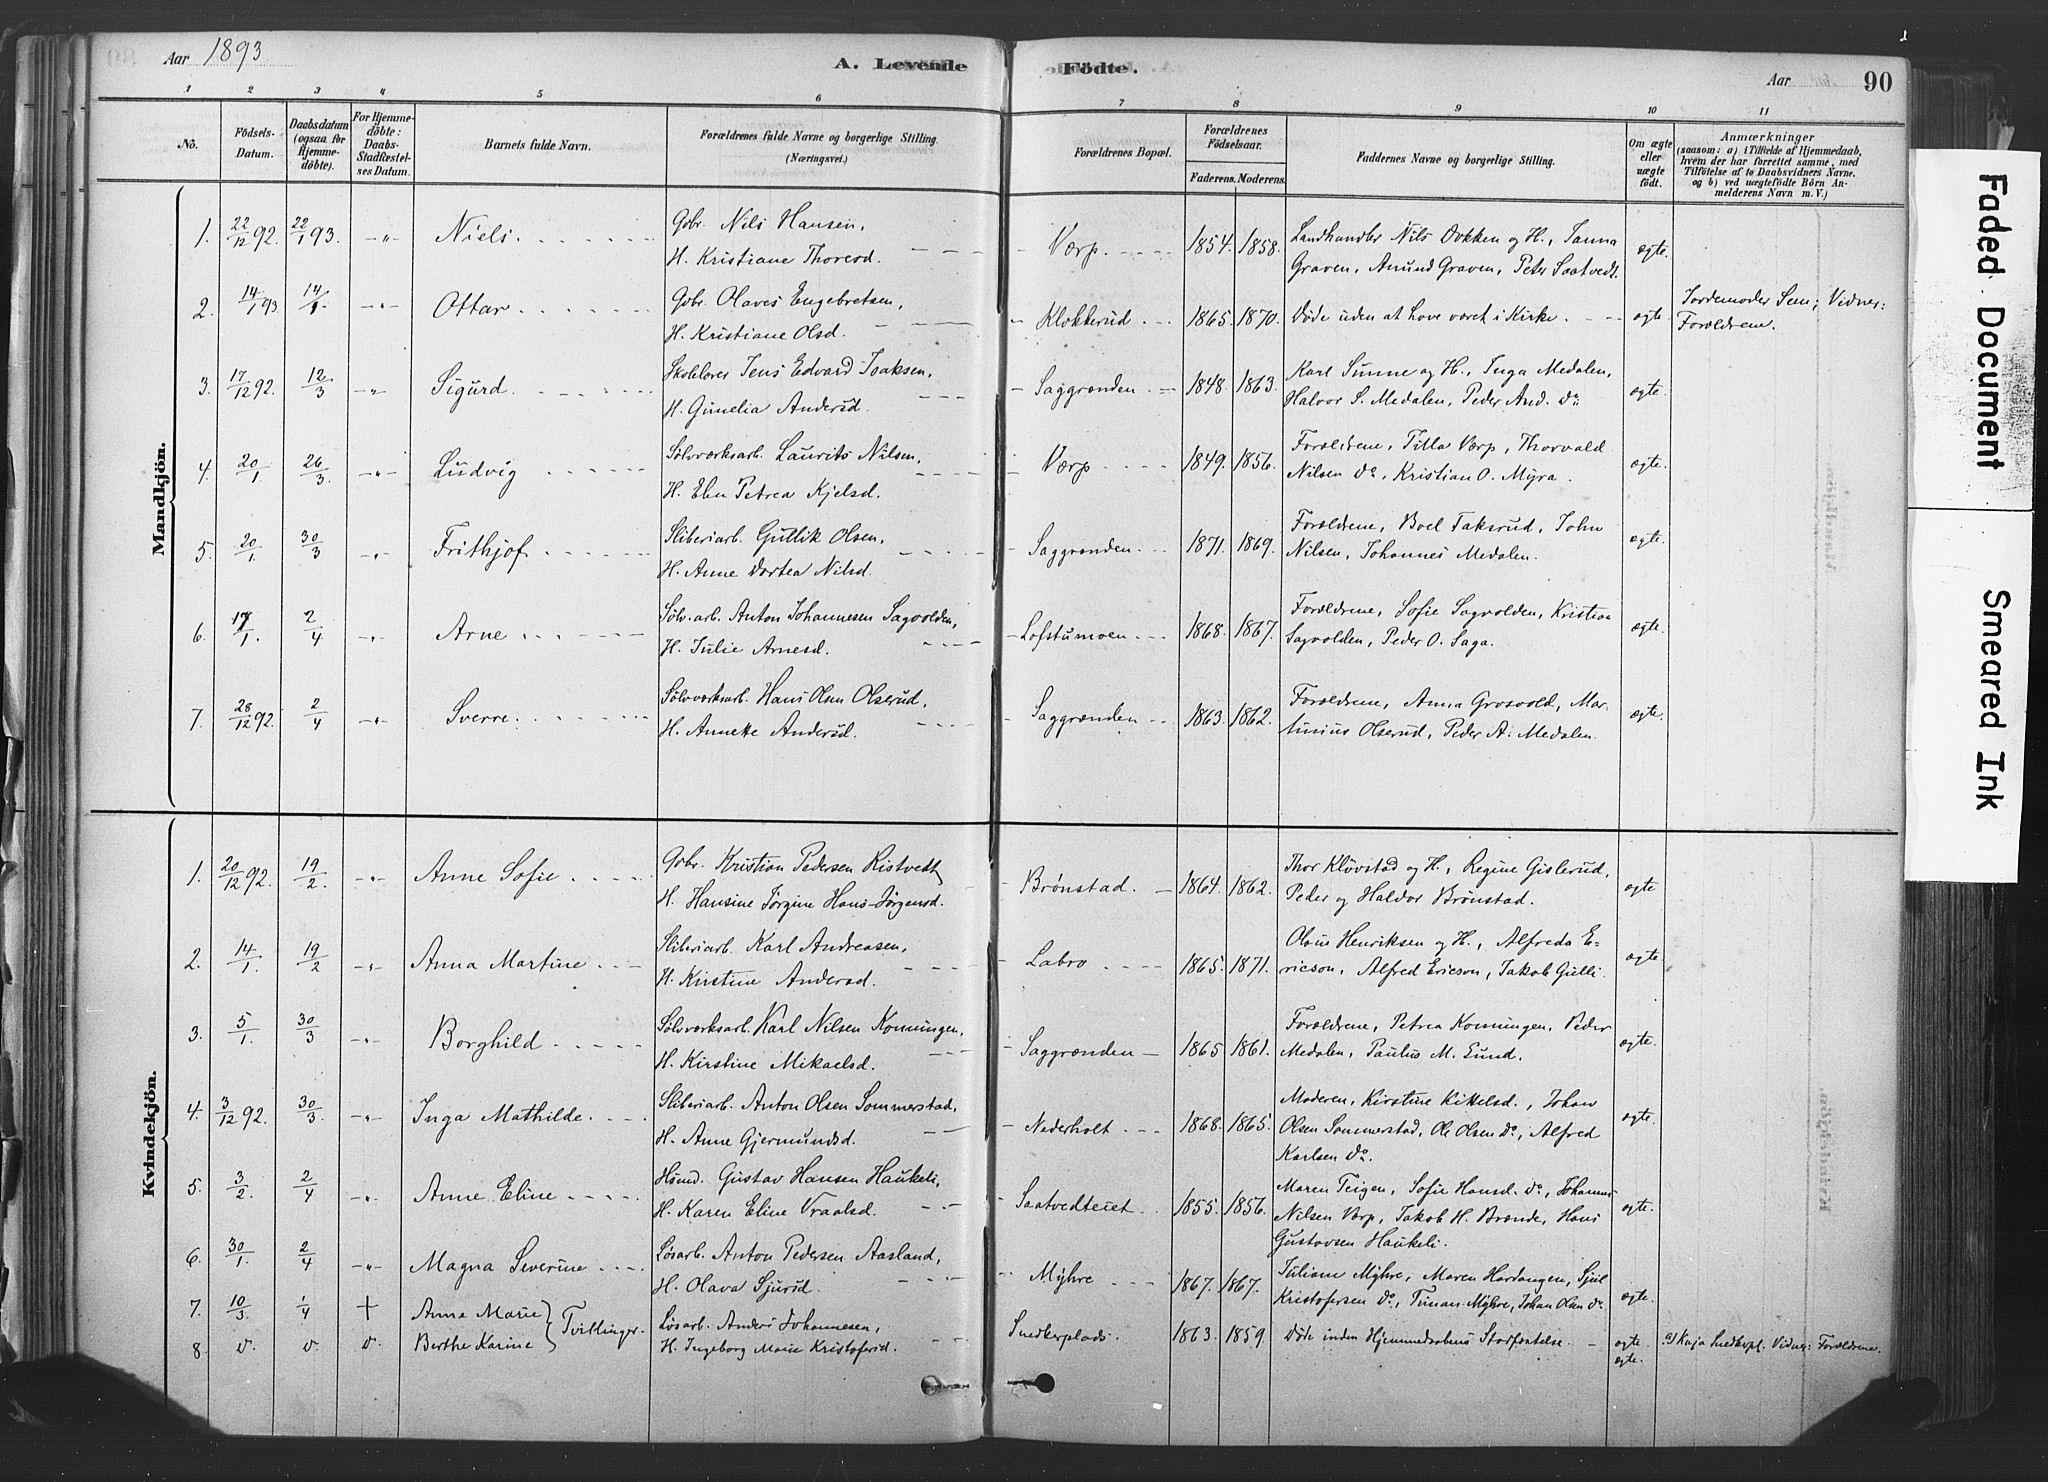 Aar 1893.
A. Levende Födte.
Aar 90
1 2 3 4 5 6 7 8 9 10 11
No.
Födsels-Datum.
Daabsdatum (ogsaa for Hjemmedöbte).
For Hjemmedöbte: Daabs-Stadfæstelses Datum.
Barnets fulde Navn.
Forældrenes fulde Navne og borgerlige Stilling. (Næringsvei.)
Forældrenes Bopæl.
Forældrenes Födselsaar.
Faderens. Moderens.
Faddernes Navne og borgerlige Stilling.
Om ægte eller uægte födt.
Anmærkninger
(saasom: a) i Tilfælde af Hjemmedaab, hvem der har forrettet samme, med Tilföielse af to Daabsvidners Navne, og b) ved uægtefödte Börn Anmelderens Navn m.V.)
Mandkjön.
1. 22/12 92. 22/1 93. -"- Niels. Gbr. Nils Hansen,
H. Kristiane Thoresd. Værp. 1854. 1858. Landhandler Nils Bakken og H., Tanna
Graven, Amund Graven, Peter Saatvedt. ægte.
2. 14/1 93. 14/1. -"- Ottar Gbr. Olaves Engebretsen,
H. Kristiane Olsd. Klokkerud 1865. 1870. Døde uden at have været i Kirke. ægte. Jordemoder Sem; Vidner:
Forældrene.
3. 17/12 92. 12/3 -"- Sigurd. Skolelærer Jens Edvard Isaksen,
H. Gunelia Andersd. Saggrænden 1848. 1863. Karl Sunne og H., Inga Medalen,
Halvor S. Medalen, Peder And. do. ægte.
4. 20/1 26/3 -"- Ludvig Sølvværksarb. Laurits Nilsen,
H. Elen Petrea Kjelsd. Værp 1849. 1856. Forældrene, Tilla Værp, Thorvald
Nilsen do, Kristian O. Myra. ægte.
5. 20/1. 30/3 -"- Frithjof Sliberiarb. Gullik Olsen,
H. Anne Dortea Nilsd. Saggrænden. 1871. 1869. Forældrene, Boel Taksrud, John
Nilsen, Johannes Medalen. ægte.
6. 17/1. 2/4 -"- Arne Sølv.arb. Anton Johannesen Sagvolden,
H. Julie Arnesd. Lofstumoen 1868. 1867. Forældrene, Sofie Sagvolden, Kristian
Sagvolden, Peder O. Saga. ægte.
7. 28/12 92. 2/4 -"- Sverre. Sølvværksarb. Hans Olsen Olserud,
H. Annette Andersd. Saggrænden 1863. 1862. Forældrene, Anna Grosvold, Mar-
tinius Olserud, Peder A. Medalen. ægte.
Kvindekjön.
1. 20/12 92. 19/2. -"- Anne Sofie Gbr. Kristian Pedersen Ristvedt
H. Hansine Jørgine Hans-Jørgensd. Brønstad. 1864. 1862. Thor Kløvstad og H., Regine Gislerud,
Peder og Haldor Brønstad. ægte
2. 14/1. 19/2 -"- Anna Martine Sliberiarb. Karl Andreasen,
H. Kirstine Andersd. Labro 1865. 1871. Olaus Henriksen og H., Alfreda E-
ricson, Alfred Ericson, Jakob Gulli. ægte.
3. 5/1. 30/3 -"- Borghild Sølvværksarb. Karl Nilsen Komningen,
H. Kirstine Mikaelsd. Saggrænden 1865 1861. Forældrene, Petrea Komningen, Peder
Medalen, Paulus M. Eund. ægte.
4. 3/12 92. 30/3. -"- Inga Mathilde. Sliberiarb. Anton Olsen Sommerstad,
H. Anne Gjermundsd. Nederholt 1868. 1865. Moderen, Kirstine Kittelsd., Johan
Olsen Sommerstad, Ole Olsen do, Alfred
Karlsen do. ægte.
5. 3/2. 2/4 -"- Anne Eline Hsmd. Gustav Hansen Haukeli,
H. Karen Eline Vraalsd. Saatvedteiet. 1855. 1856. Maren Teigen, Sofie Hansd. do, Johannes
Nilsen Værp, Jakob H. Brænde, Hans
Gustavsen Haukeli. ægte.
6. 30/1. 2/4 -"- Magna Severine Løsarb. Anton Pedersen Aasland,
H. Olava Sjursd. Myhre 1867. 1867. Juliane Myhre, Maren Hardangen, Sjul
Kristofersen do, Tinan Myhre, Johan Olsen do. ægte.
7. 10/3. 1/4 + Anne Marie } Tvillinger. Løsarb. Anders Johannesen,
8. d. d. d. Berthe Karine H. Ingeborg Marie Kristofersd. Snekkerplads. 1863. 1859. Døde inden Hjemmedaabens Stadfæstelse. ægte
ægte. a) Kaja Snedkerpl. Vidner: Forældrene.
Faded Document
Smeared Ink